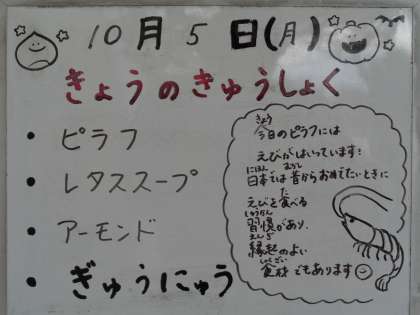 10月5日(月)
きょうのきゅうしょく
・ピラフ
・レタススープ
・アーモンド
・ぎゅうにゅう
きょう
今日のピラフには
えびがはいっています!
にほん むかし
日本では昔からおめでたいときに
た
えびを食べる
しゅうかん
習慣があり、
えんぎ
縁起のよい
しょくざい
食材でもあります